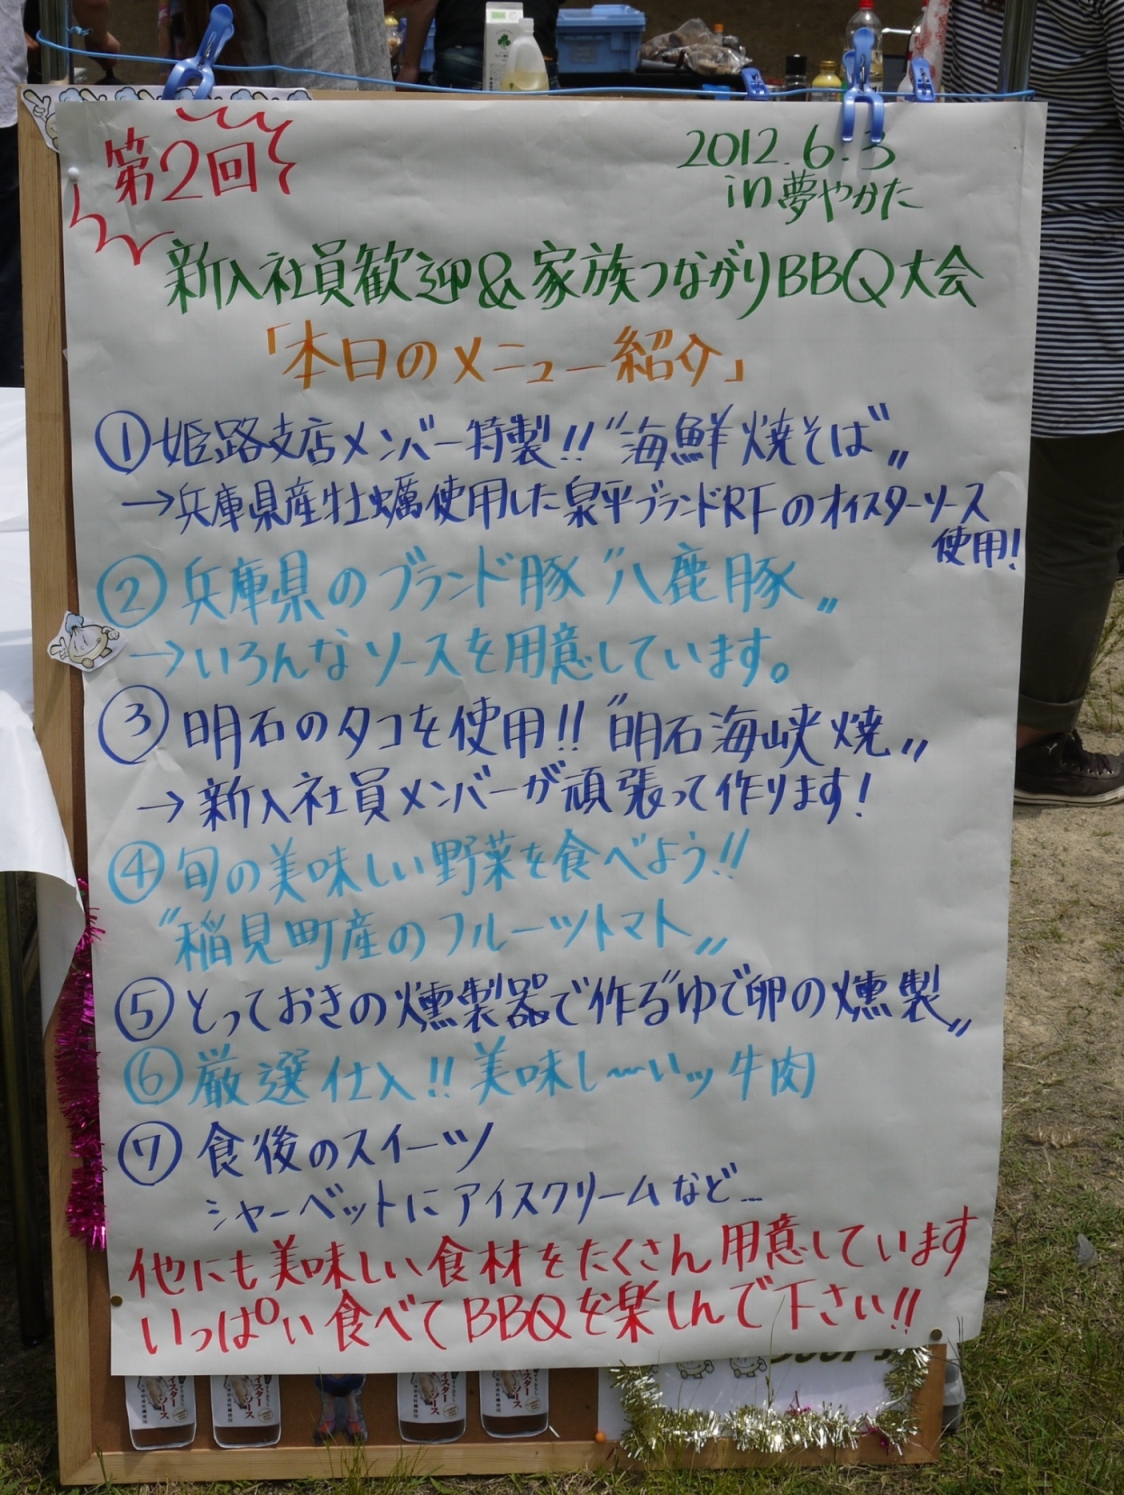 第2回
2012.6.3
in夢やかた
新入社員歓迎&家族つながりBBQ大会
「本日のメニュー紹介」
①姫路支店メンバー特製!!〝海鮮焼そば〟
→兵庫県産牡蠣使用した泉平ブランドRFのオイスターソース
使用!
②兵庫県のブランド豚〝八鹿豚〟
→いろんなソースを用意しています。
③明石のタコを使用!!〝明石海峡焼〟
→新入社員メンバーが頑張って作ります!
④旬の美味しい野菜を食べよう!!
〝稲見町産のフルーツトマト〟
⑤とっておきの燻製器で作る〝ゆで卵の燻製〟
⑥厳選仕入!!美味し〜いッ牛肉
⑦食後のスイーツ
シャーベットにアイスクリームなど…
他にも美味しい食材をたくさん用意しています
いっぱい食べてBBQを楽しんで下さい!!